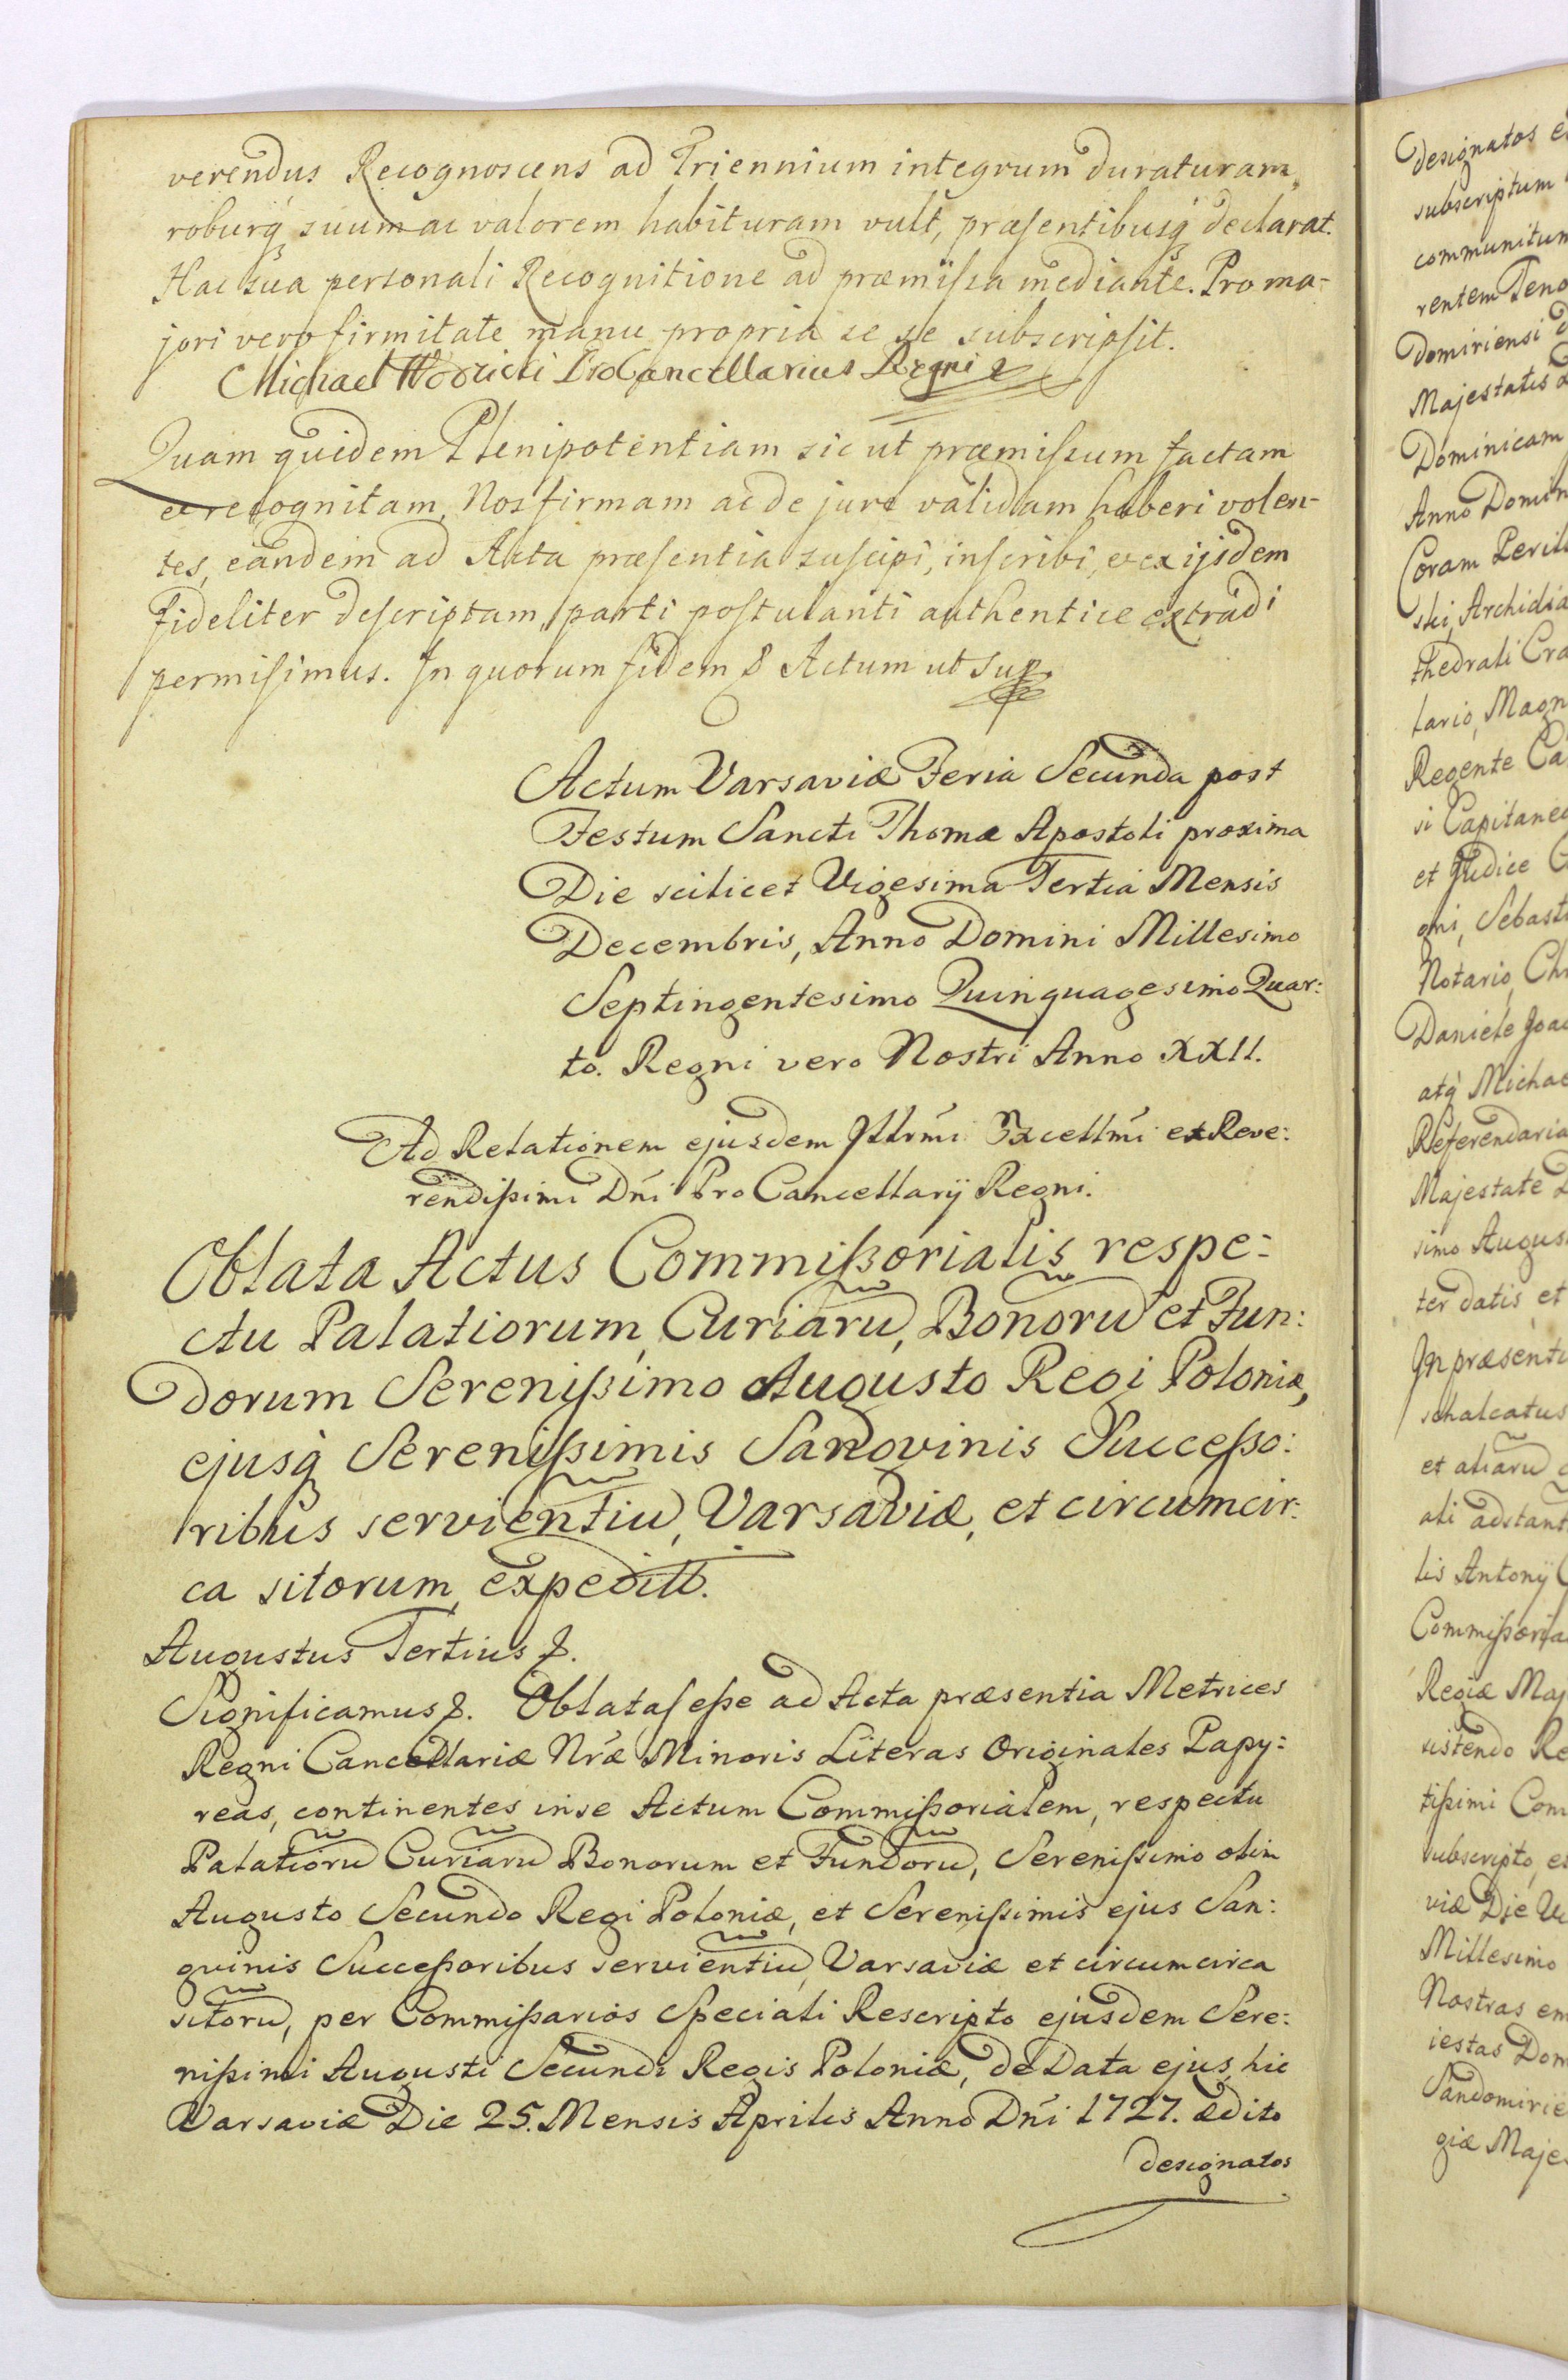 verendus Recognoscens ad Triennium integrum duraturam,
roburq́ suum ac valorem habituram vult, præsentibusq́ declarat.
Hac sua personali Recognitione ad præmissa mediante. Pro ma-
jori vero firmitate manu propria se se subscripsit.
Michael Wodzicki ProCancellarius Regni
Quam quidem Plenipotentiam sic ut præmissum factam
et recognitam, Nos firmam ac de jure validam haberi volen-
tes, eandem ad Acta præsentia suscipi, inscribi, et ex ijsdem
fideliter descriptam, parti postulanti authentice extradi
permisimus. In quorum fidem & Actum ut sup.
Actum Varsaviæ Feria Secunda post
Festum Sancti Thomæ Apostoli proxima
Die scilicet Vigesima Tertia Mensis
Decembris, Anno Domini Millesimo
Septingentesimo Quinquagesimo Quar:
to. Regni vero Nostri Anno XXII.
Ad Relationem ejusdem Illrmi Excellmi et Reve:
rendissimi Dńi Pro Cancellarij Regni.
Oblata Actus Commissorialis respe:
ctu Palatiorum, Curiarũ, Bonorũ et Fun:
dorum Serenissimo Augusto Regi Poloniæ,
ejusq́ Serenissimis Sanovinis Successo:
ribus servientiũ, Varsaviæ, et circumcir:
ca sitorum, expeditt.
Augustus Tertius &.
Significamus &. Oblatas esse ad Acta præsentia Metrices
Regni Cancellariæ Nræ Minoris Literas Originales Papy:
reas, continentes in se Actum Commissorialem, respectu
Palatiorũ Curiarũ Bonorum et Fundorũ, Serenissimo olim
Augusto Secundo Regi Poloniæ, et Serenissimis ejus San:
guinis Successoribus servientiũ, Varsaviæ et circumcirca
sitorũ, per Commissarios Speciali Rescripto ejusdem Sere:
nissimi Augusti Secundi Regis Poloniæ, de Data ejus, hic
Varsaviæ Die 25. Mensis Aprilis Anno Dńi 1727. ædito
designatos
designatos
subscriptum
communitum
rentem
domiriensi
Majestatis
Dominicam
Anno
Coram
ski, Archidia
thedrali Cra
lario, Magn
Regente Ca
si Capitaneo
et Judice
gni, Sebasti
Notario, Ch
Daniele Joa
atq́ Michae
Referendaria
Majestate
simo Augus
ter datis, et
In præsenti
schalcatus
et aliarũ
ali adstant
lis Antonij
Commissoria
Regiæ Maj
sistendo Re
tissimi Com
subscripto, et
viæ Die Vi
Millesimo
Nostras em
iestas Dom
Sandomirie
giæ Maje